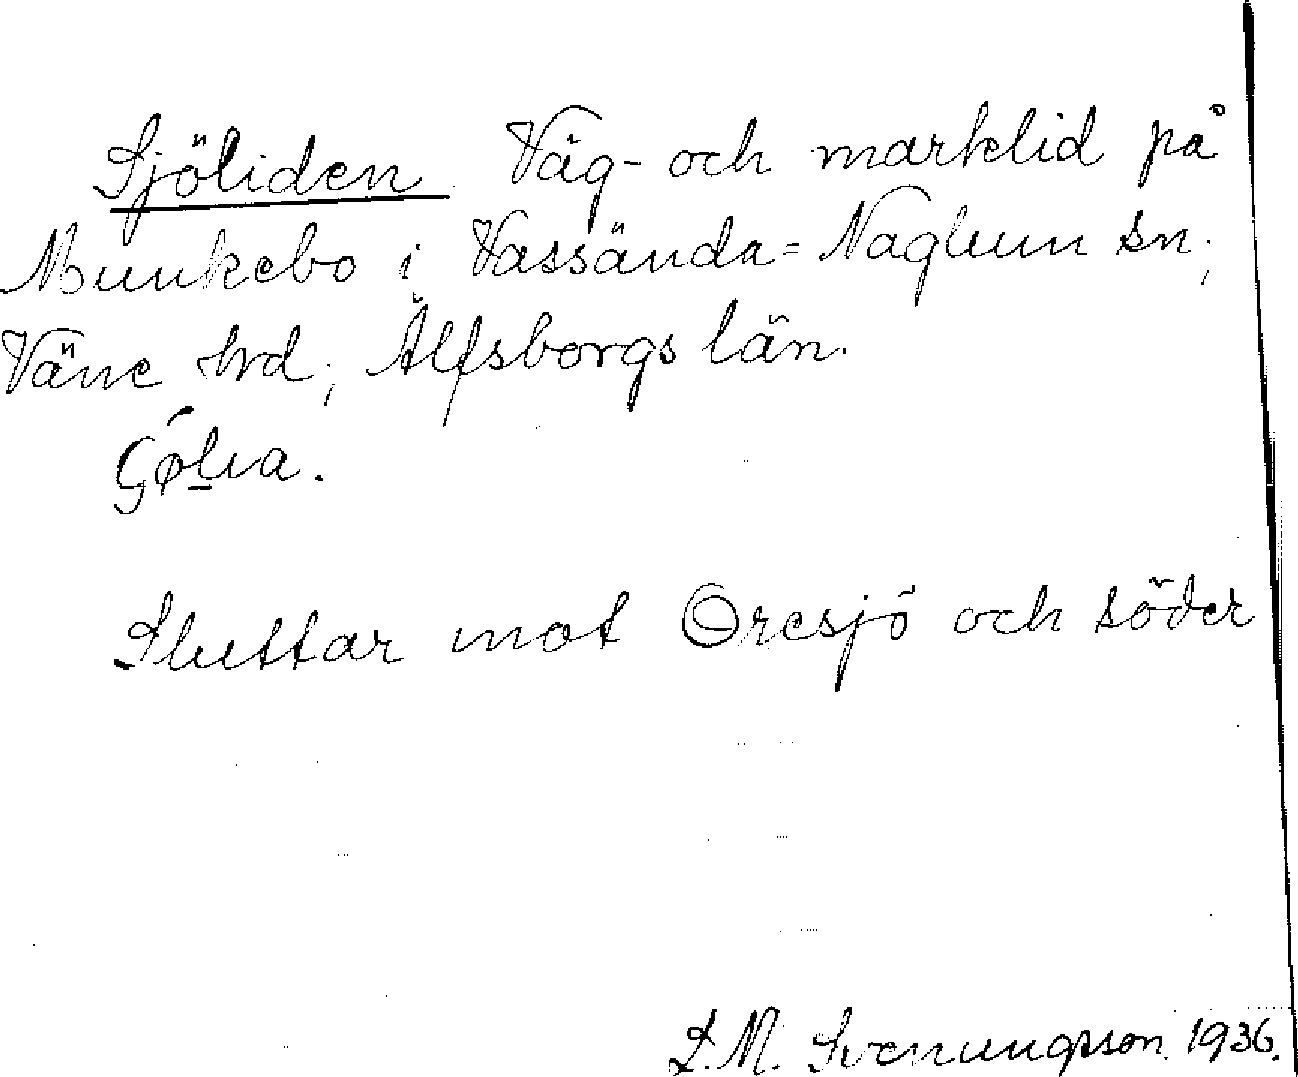 Sjöliden Väg- och marklid på
Munkebo i Vassända=Naglum sn;
Väne hrd; Älfsborgs län.
Sluttar mot Öresjö och söder
S.M. Svenungsson. 1936.